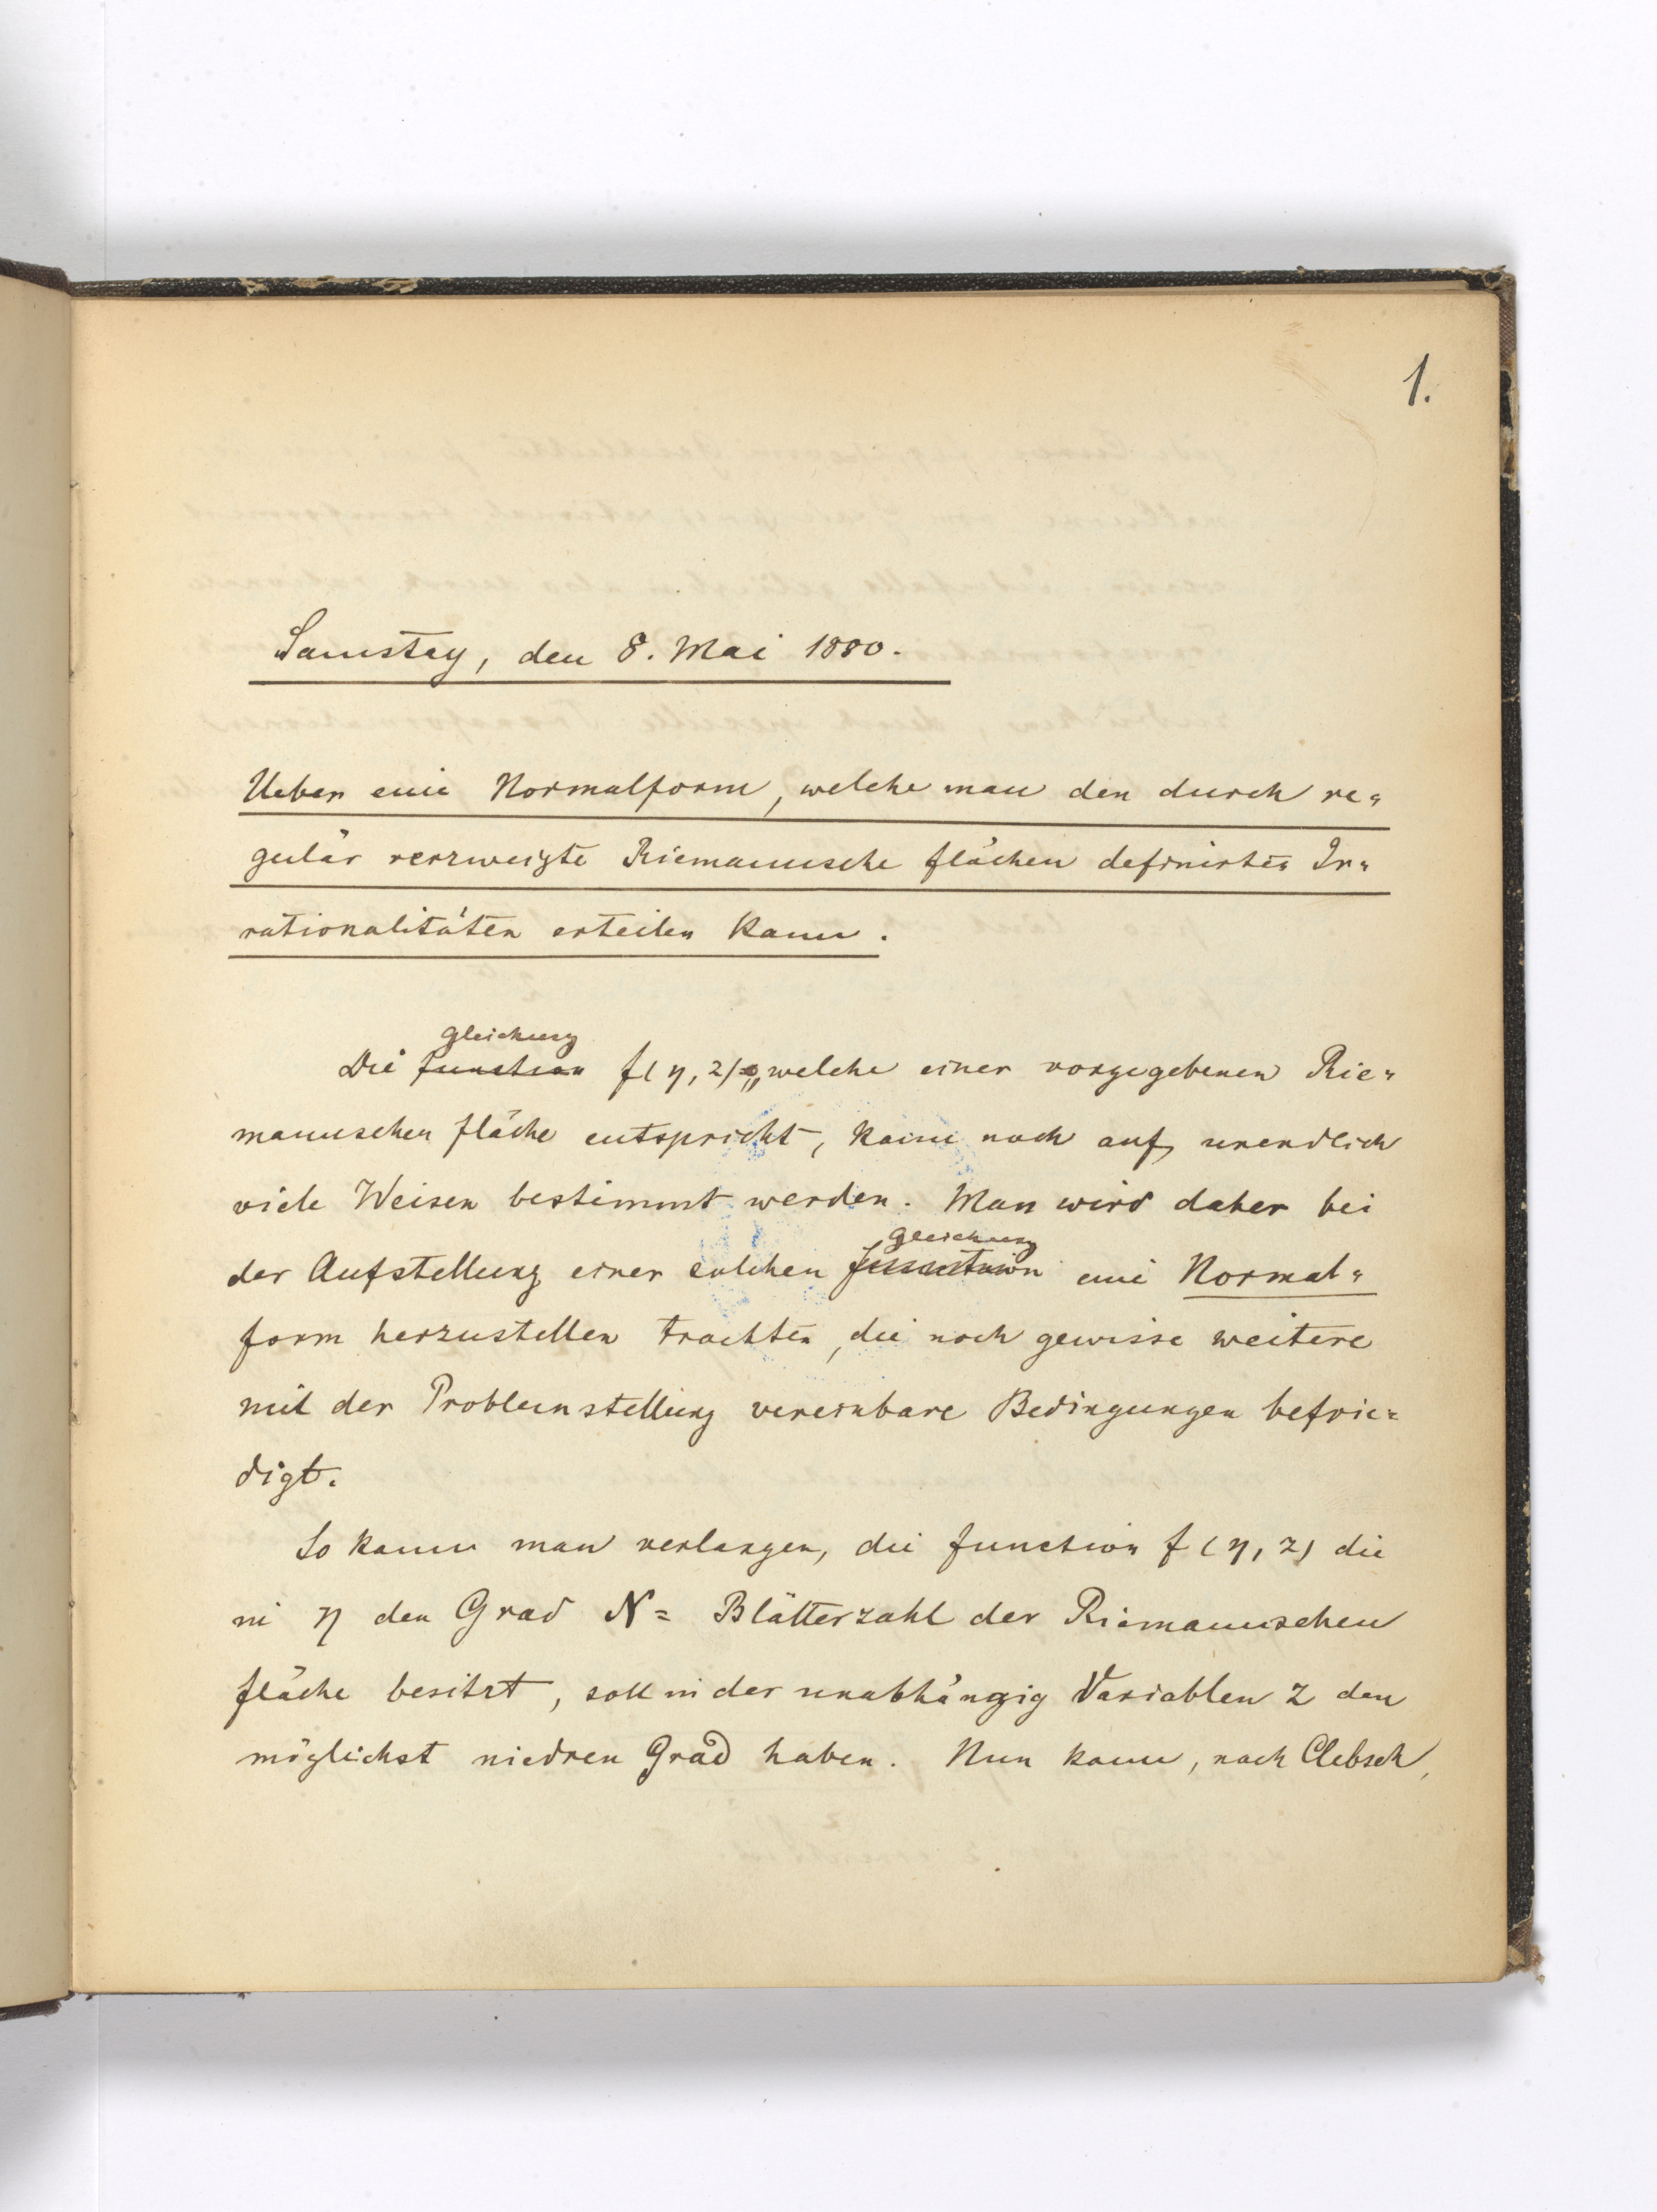 1.
Samstag, den 8. Mai 1880.
Ueber eine Normalform, welche man den durch re=
gulär verzweigte Riemannsche Flächen definirten Ir=
rationalitäten erteilen kann.
Gleichung
Die Function f(η, z)=0, welche einer vorgegebenen Rie=
mannschen Fläche entspricht, kann noch auf unendlich
viele Weisen bestimmt werden. Man wird daher bei
Gleichung
der Aufstellung einer solchen Function eine Normal=
form herzustellen trachten, die noch gewisse weitere
mit der Problemstellung vereinbare Bedingungen befrie=
digt.
So kann man verlangen, die Function f(η, z) die
in η den Grad N = Blätterzahl der Riemannschen
Fläche besitzt, soll in der unabhängig Variablen z den
möglichst niedren Grad haben. Nun kann, nach Clebsch,